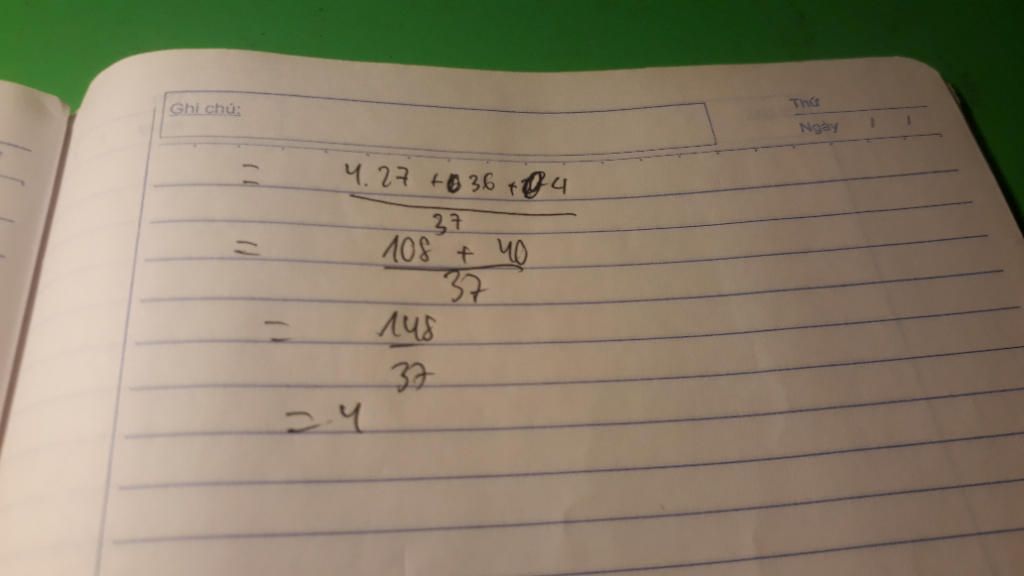 Ghi chú:
Thứ
Ngày / /
= 4.27 + 36 + 4
37
= 108 + 40
37
= 148
37
= 4